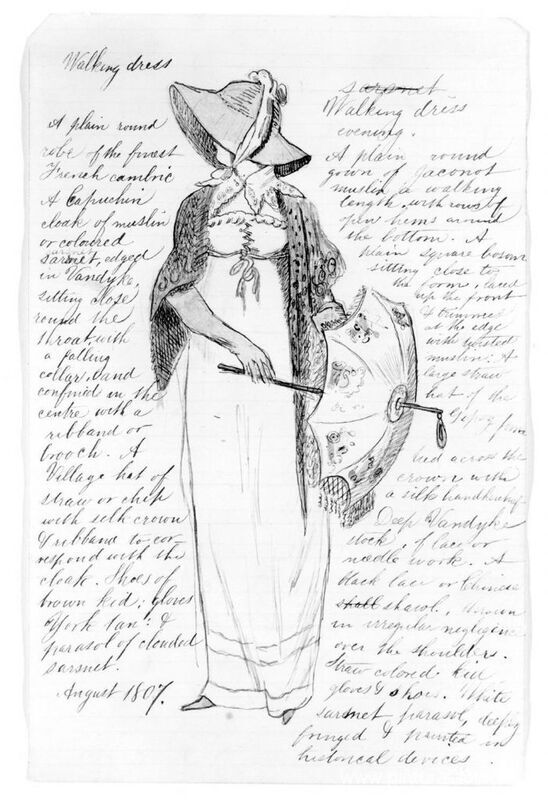 Walking dress
A plain round
robe of the finest
French cambric
A Capuchin
cloak of muslin
or coloured
sarsnet, edged
in Vandyke,
sitting close
round the
throat with
a falling
collar, and
confined in the
centre with a
ribband or
brooch. A
Village hat of
straw or chip
with silk crown
& ribband to cor-
respond with the
cloak. Shoes of
brown kid; gloves
York tan; &
parasol of clouded
sarsnet.
August 1807.
sarsnet
Walking dress
evening.
A plain round
gown of Jaconot
muslin, a walking
length, with rows of
open hems around
the bottom. A
plain square bosom
sitting close to
the form, laced
up the front
& trimmed
at the edge
with twisted
muslin: A
large straw
hat of the
Gipsy form
tied across the
crown with
a silk handkerchief
Deep Vandyke
stock, of lace or
needle work. A
black lace or Chinese
shall shawl, thrown
in irregular negligence
over the shoulders.
Straw colored kid
gloves & shoes. White
sarsnet parasol, deeply
fringed & painted in
historical devices.